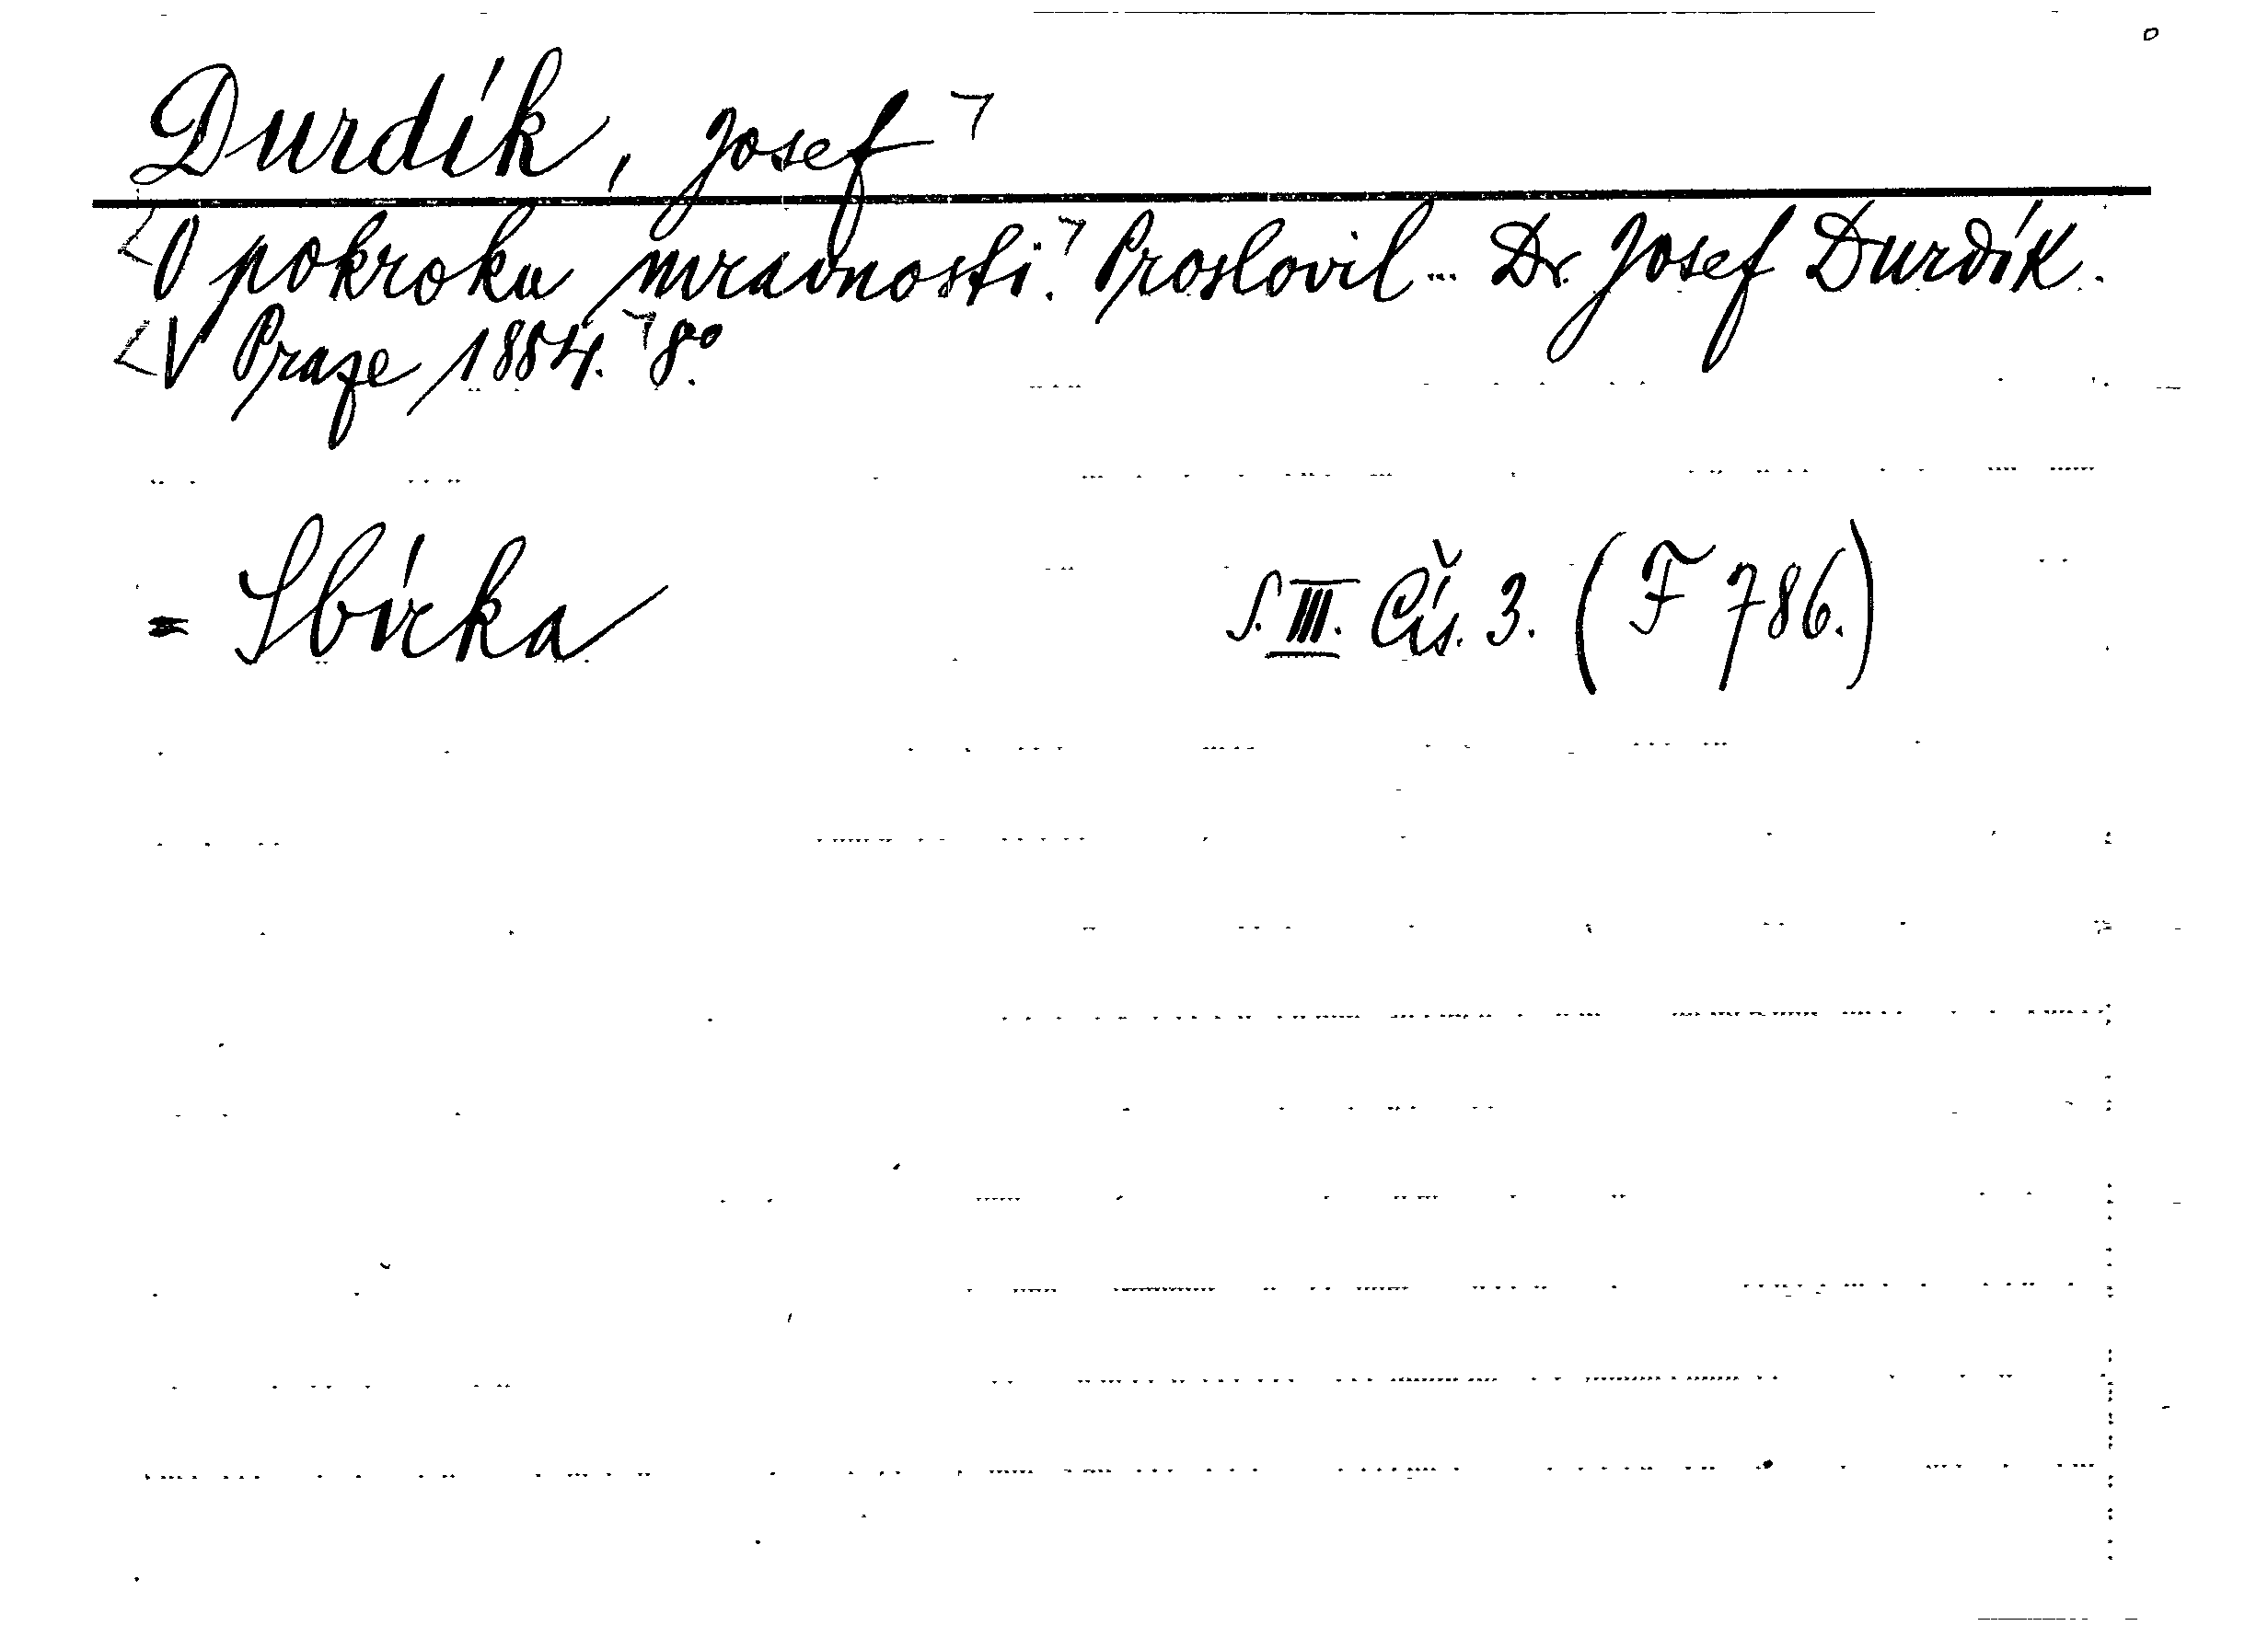 Durdík, Josef
O pokroku mravnosti. Proslovil ... Dr. Josef Durdík.
V Praze 1884. 8°.
= Sbírka S. III. Čís. 3. (F 786.)